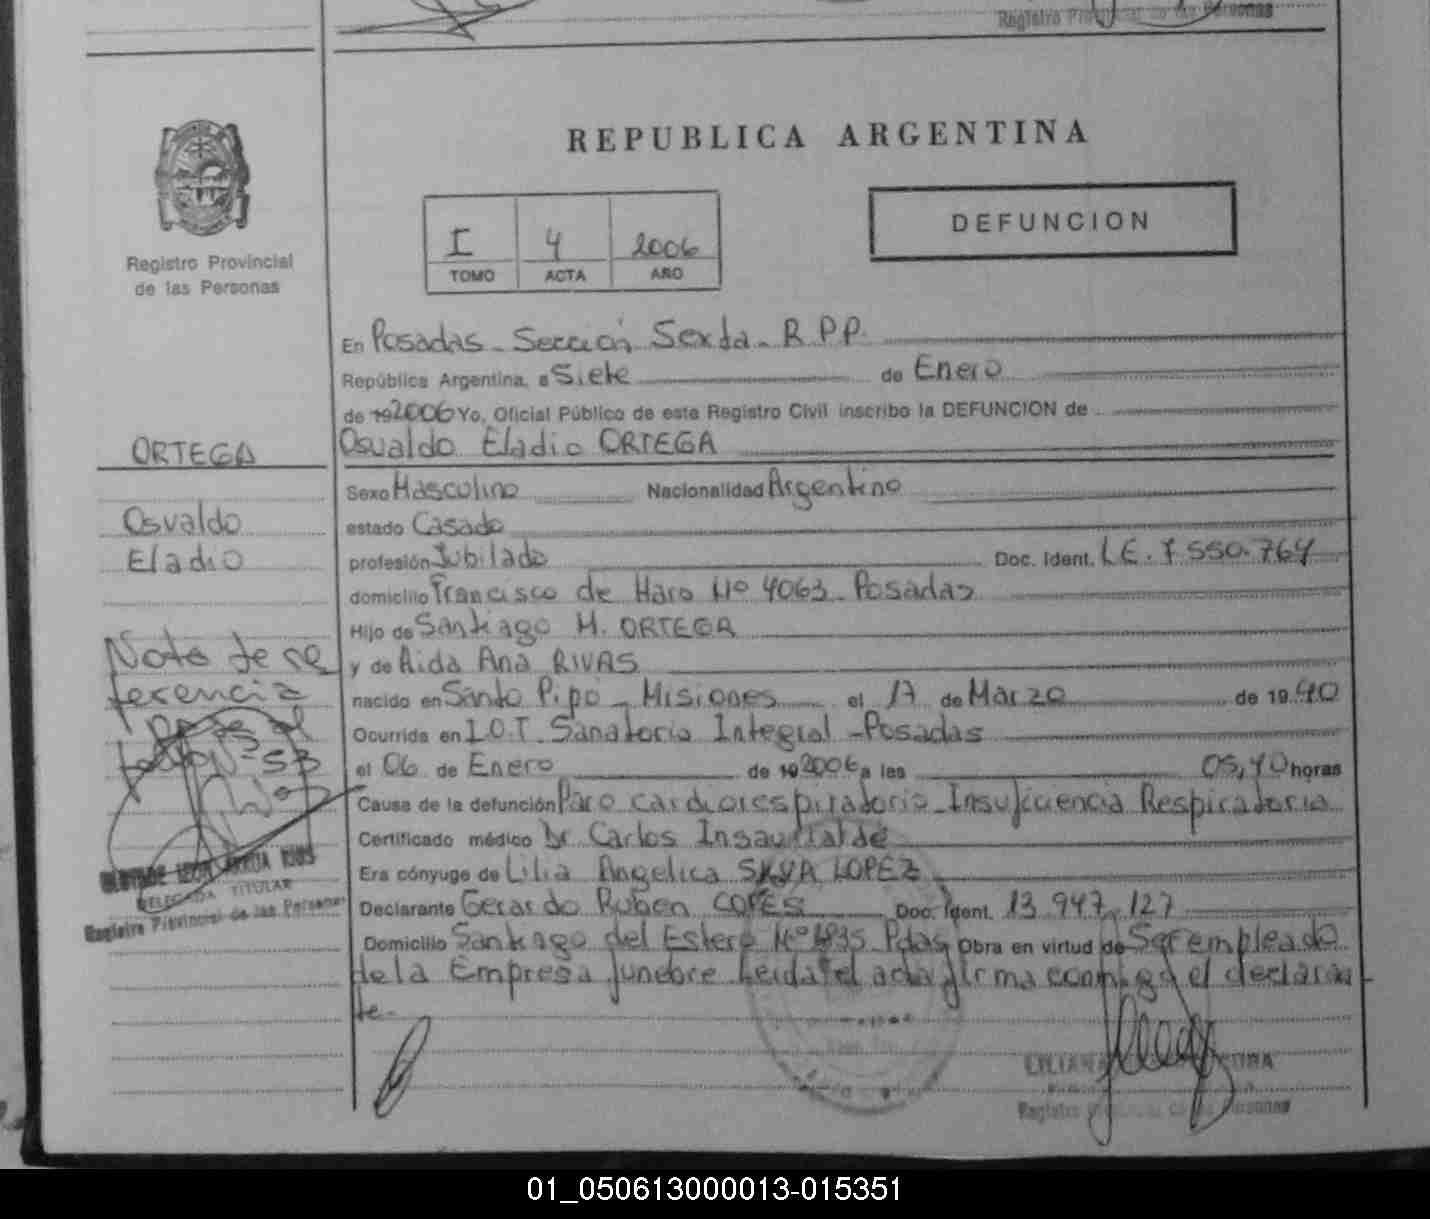 Registro Provincial de las Personas
REPUBLICA ARGENTINA
Registro Provincial
de las Personas
I 4 2006
TOMO ACTA AÑO
DEFUNCION
En Posadas - Sección Sexta - R.P.P.
República Argentina, a Siete de Enero
de 19 2006 Yo, Oficial Público de este Registro Civil inscribo la DEFUNCION de
Osvaldo Eladio ORTEGA
Sexo Masculino Nacionalidad Argentino
estado Casado
profesión Jubilado Doc. Ident. L.E. 7.550.764
domicilio Francisco de Haro Nº 4063 - Posadas
Hijo de Santiago M. ORTEGA
y de Aida Ana RIVAS
nacido en Santo Pipó - Misiones el 17 de Marzo de 19 40
Ocurrida en I.O.T. Sanatorio Integral - Posadas
el 06 de Enero de 19 2006 a las 05,40 horas
Causa de la defunción Paro cardiorespiratorio - Insuficiencia Respiratoria
Certificado médico Dr Carlos Insaurralde
Era cónyuge de Lilia Angelica SILVA LOPEZ
Declarante Gerardo Ruben COPES Doc. Ident. 13.947.127
Domicilio Santiago del Estero Nº Pdas Obra en virtud de Ser empleado
de la Empresa funebre Leida el acta firma conmigo el declaran
te-
ORTEGA
Osvaldo
Eladio
Nota de re
ferencia
TITULAR
Registro Provincial de las Personas
LILIANA
Registro Provincial de las Personas
01_050613000013-015351